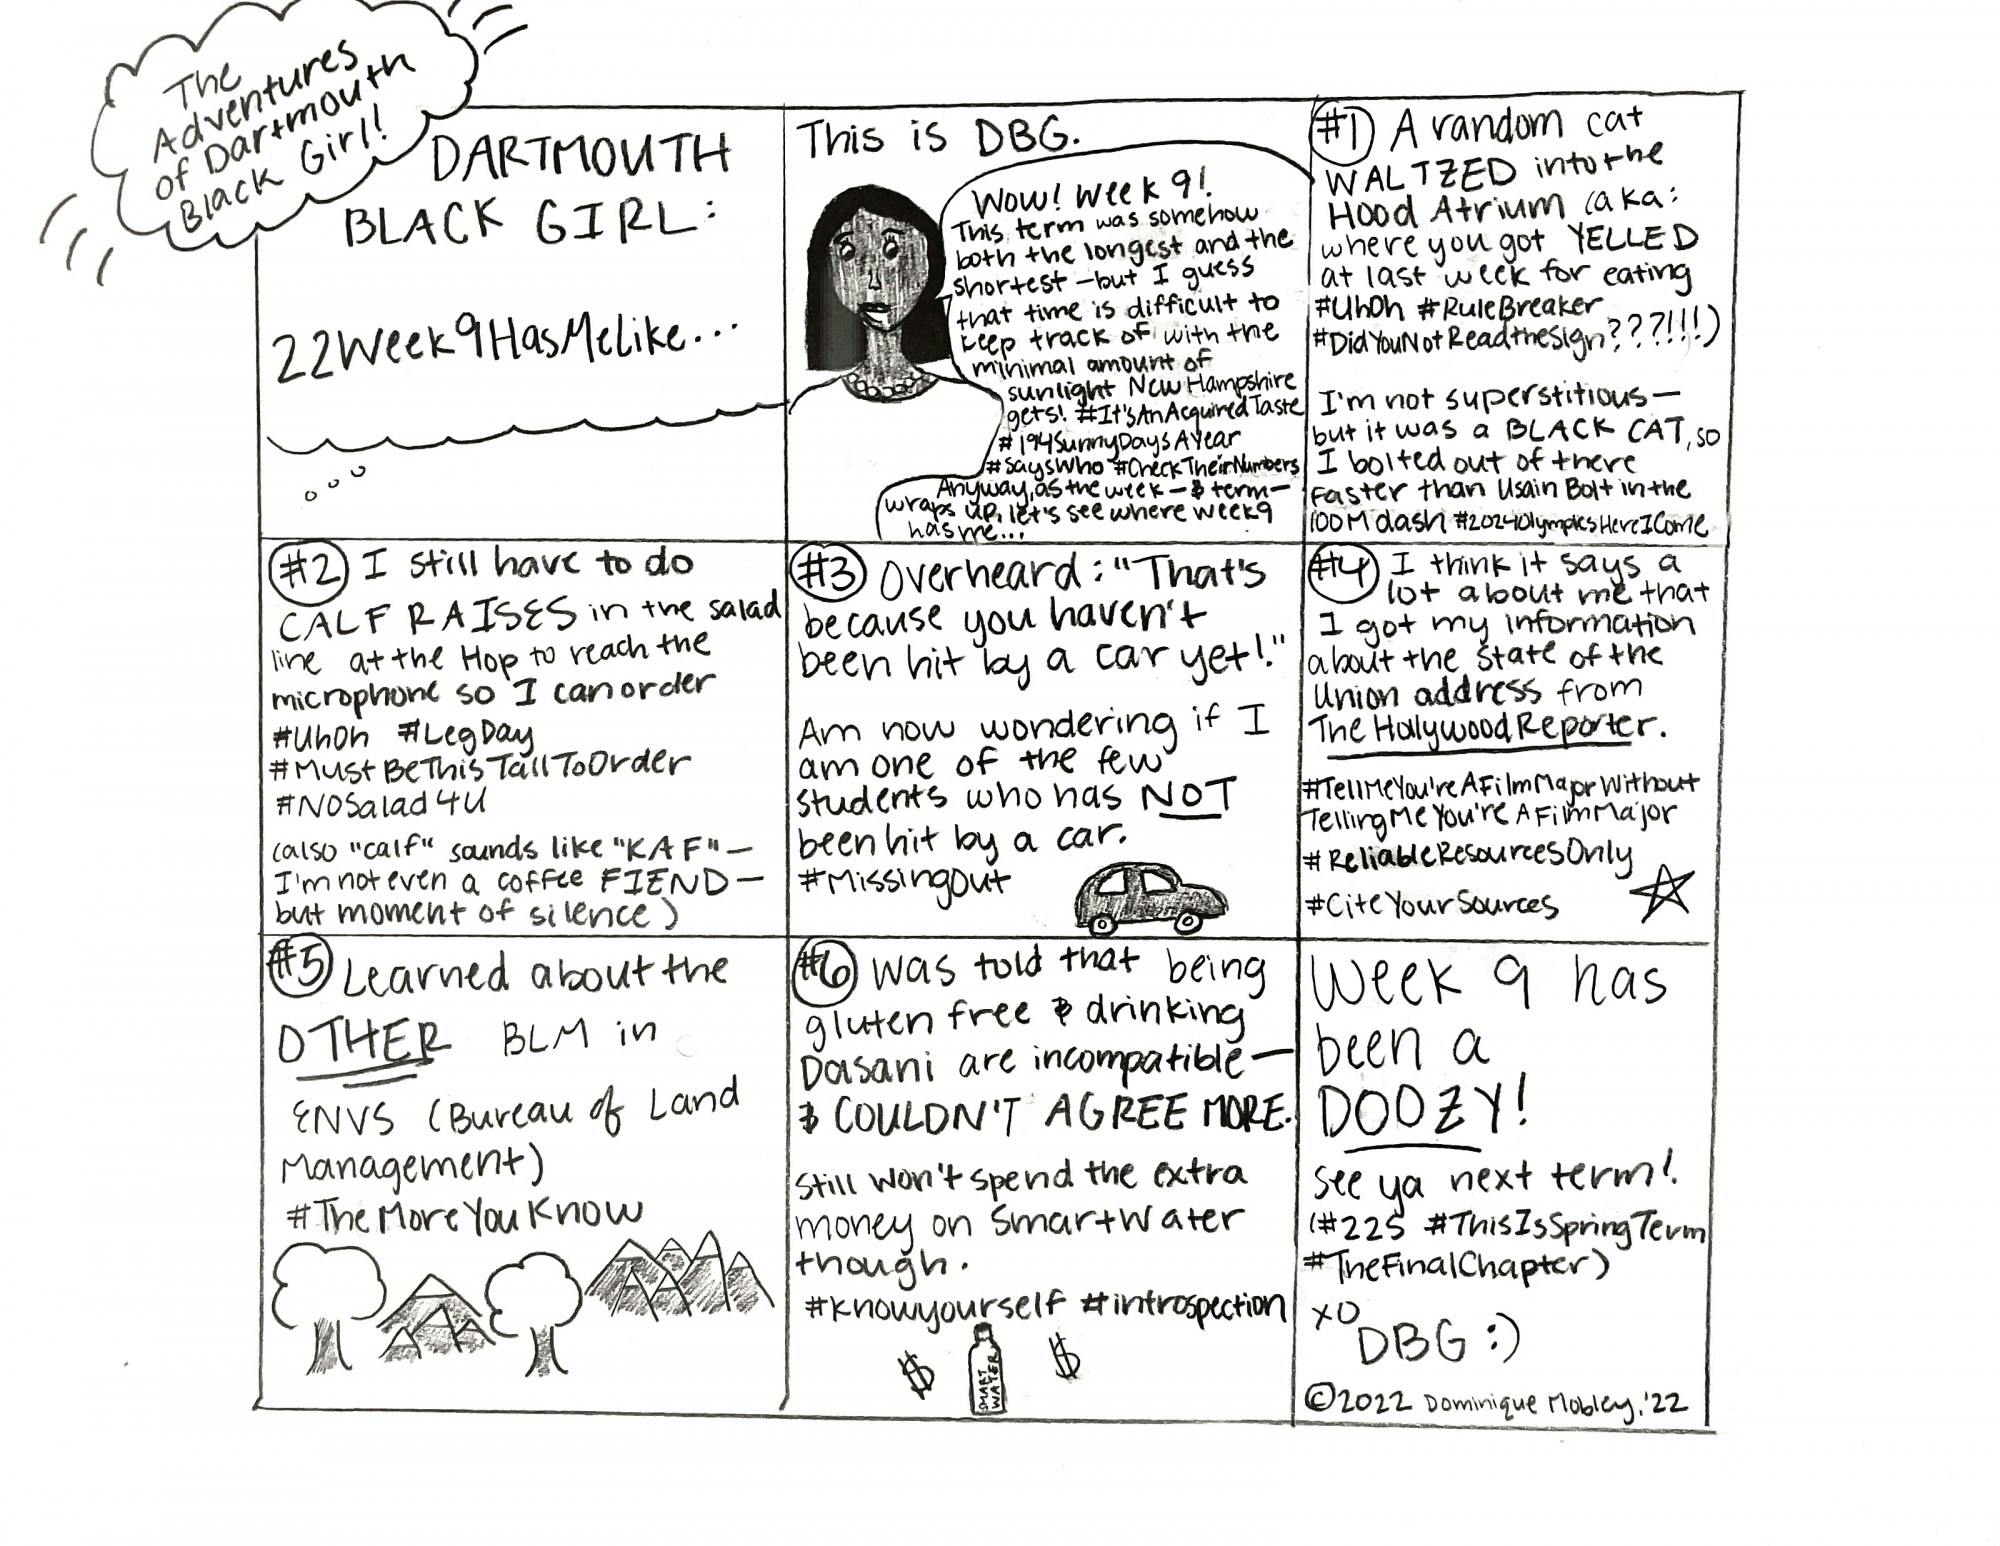 The
Adventures
of Dartmouth
Black Girl!
DARTMOUTH
BLACK GIRL:
22Week9HasMeLike...
This is DBG.
Wow! Week 9!
This term was somehow
both the longest and the
shortest - but I guess
that time is difficult to
keep track of with the
minimal amount of
sunlight New Hampshire
gets! #It'sAnAcquiredTaste
#194SunnyDaysAYear
#SaysWho #CheckTheirNumbers
Anyway, as the week - & term -
wraps up, let's see where week 9
has me...
#1 A random cat
WALTZED into the
Hood Atrium (aka:
where you got YELLED
at last week for eating
#UhOh #RuleBreaker
#DidYouNotReadtheSign???!!!)
I'm not superstitious -
but it was a BLACK CAT, so
I bolted out of there
faster than Usain Bolt in the
100M dash #2024OlympicsHereICome
#2 I still have to do
CALF RAISES in the salad
line at the Hop to reach the
microphone so I can order
#UhOh #LegDay
#MustBeThisTallToOrder
#NoSalad4U
(also "calf" sounds like "KAF" -
I'm not even a coffee FIEND -
but moment of silence)
#3 Overheard: "That's
because you haven't
been hit by a car yet!"
Am now wondering if I
am one of the few
students who has NOT
been hit by a car.
#MissingOut
#4 I think it says a
lot about me that
I got my information
about the State of the
Union address from
The Hollywood Reporter.
#TellMeYou'reAFilmMajorWithout
TellingMeYou'reAFilmMajor
#ReliableResourcesOnly
#CiteYourSources
#5 Learned about the
OTHER BLM in
ENVS (Bureau of Land
Management)
#TheMoreYouKnow
#6 Was told that being
gluten free & drinking
Dasani are incompatible -
& COULDN'T AGREE MORE.
Still won't spend the extra
money on SmartWater
though.
#knowyourself #introspection
$ SMART WATER $
Week 9 has
been a
DOOZY!
See ya next term!
(#22S #ThisIsSpringTerm
#TheFinalChapter)
XO
DBG :)
©2022 Dominique Mobley, '22